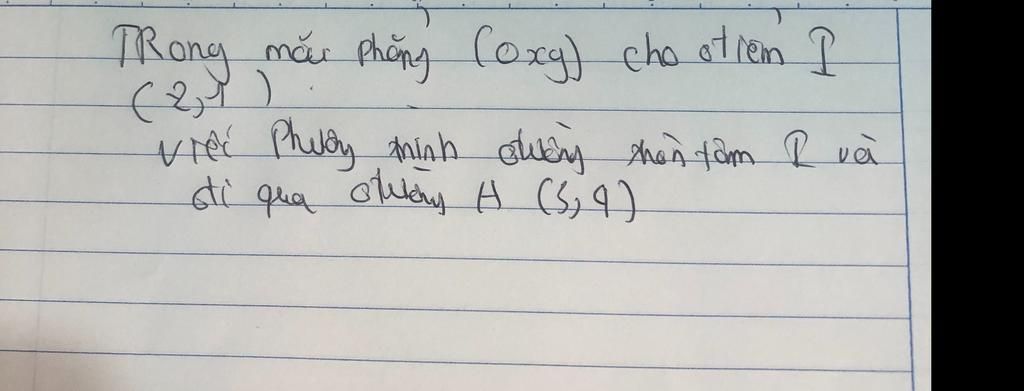 TRong mặt phẳng (Oxy) cho điểm I
(2,1)
viết Phương trình đường tròn tâm I và
đi qua đường A (5,9)